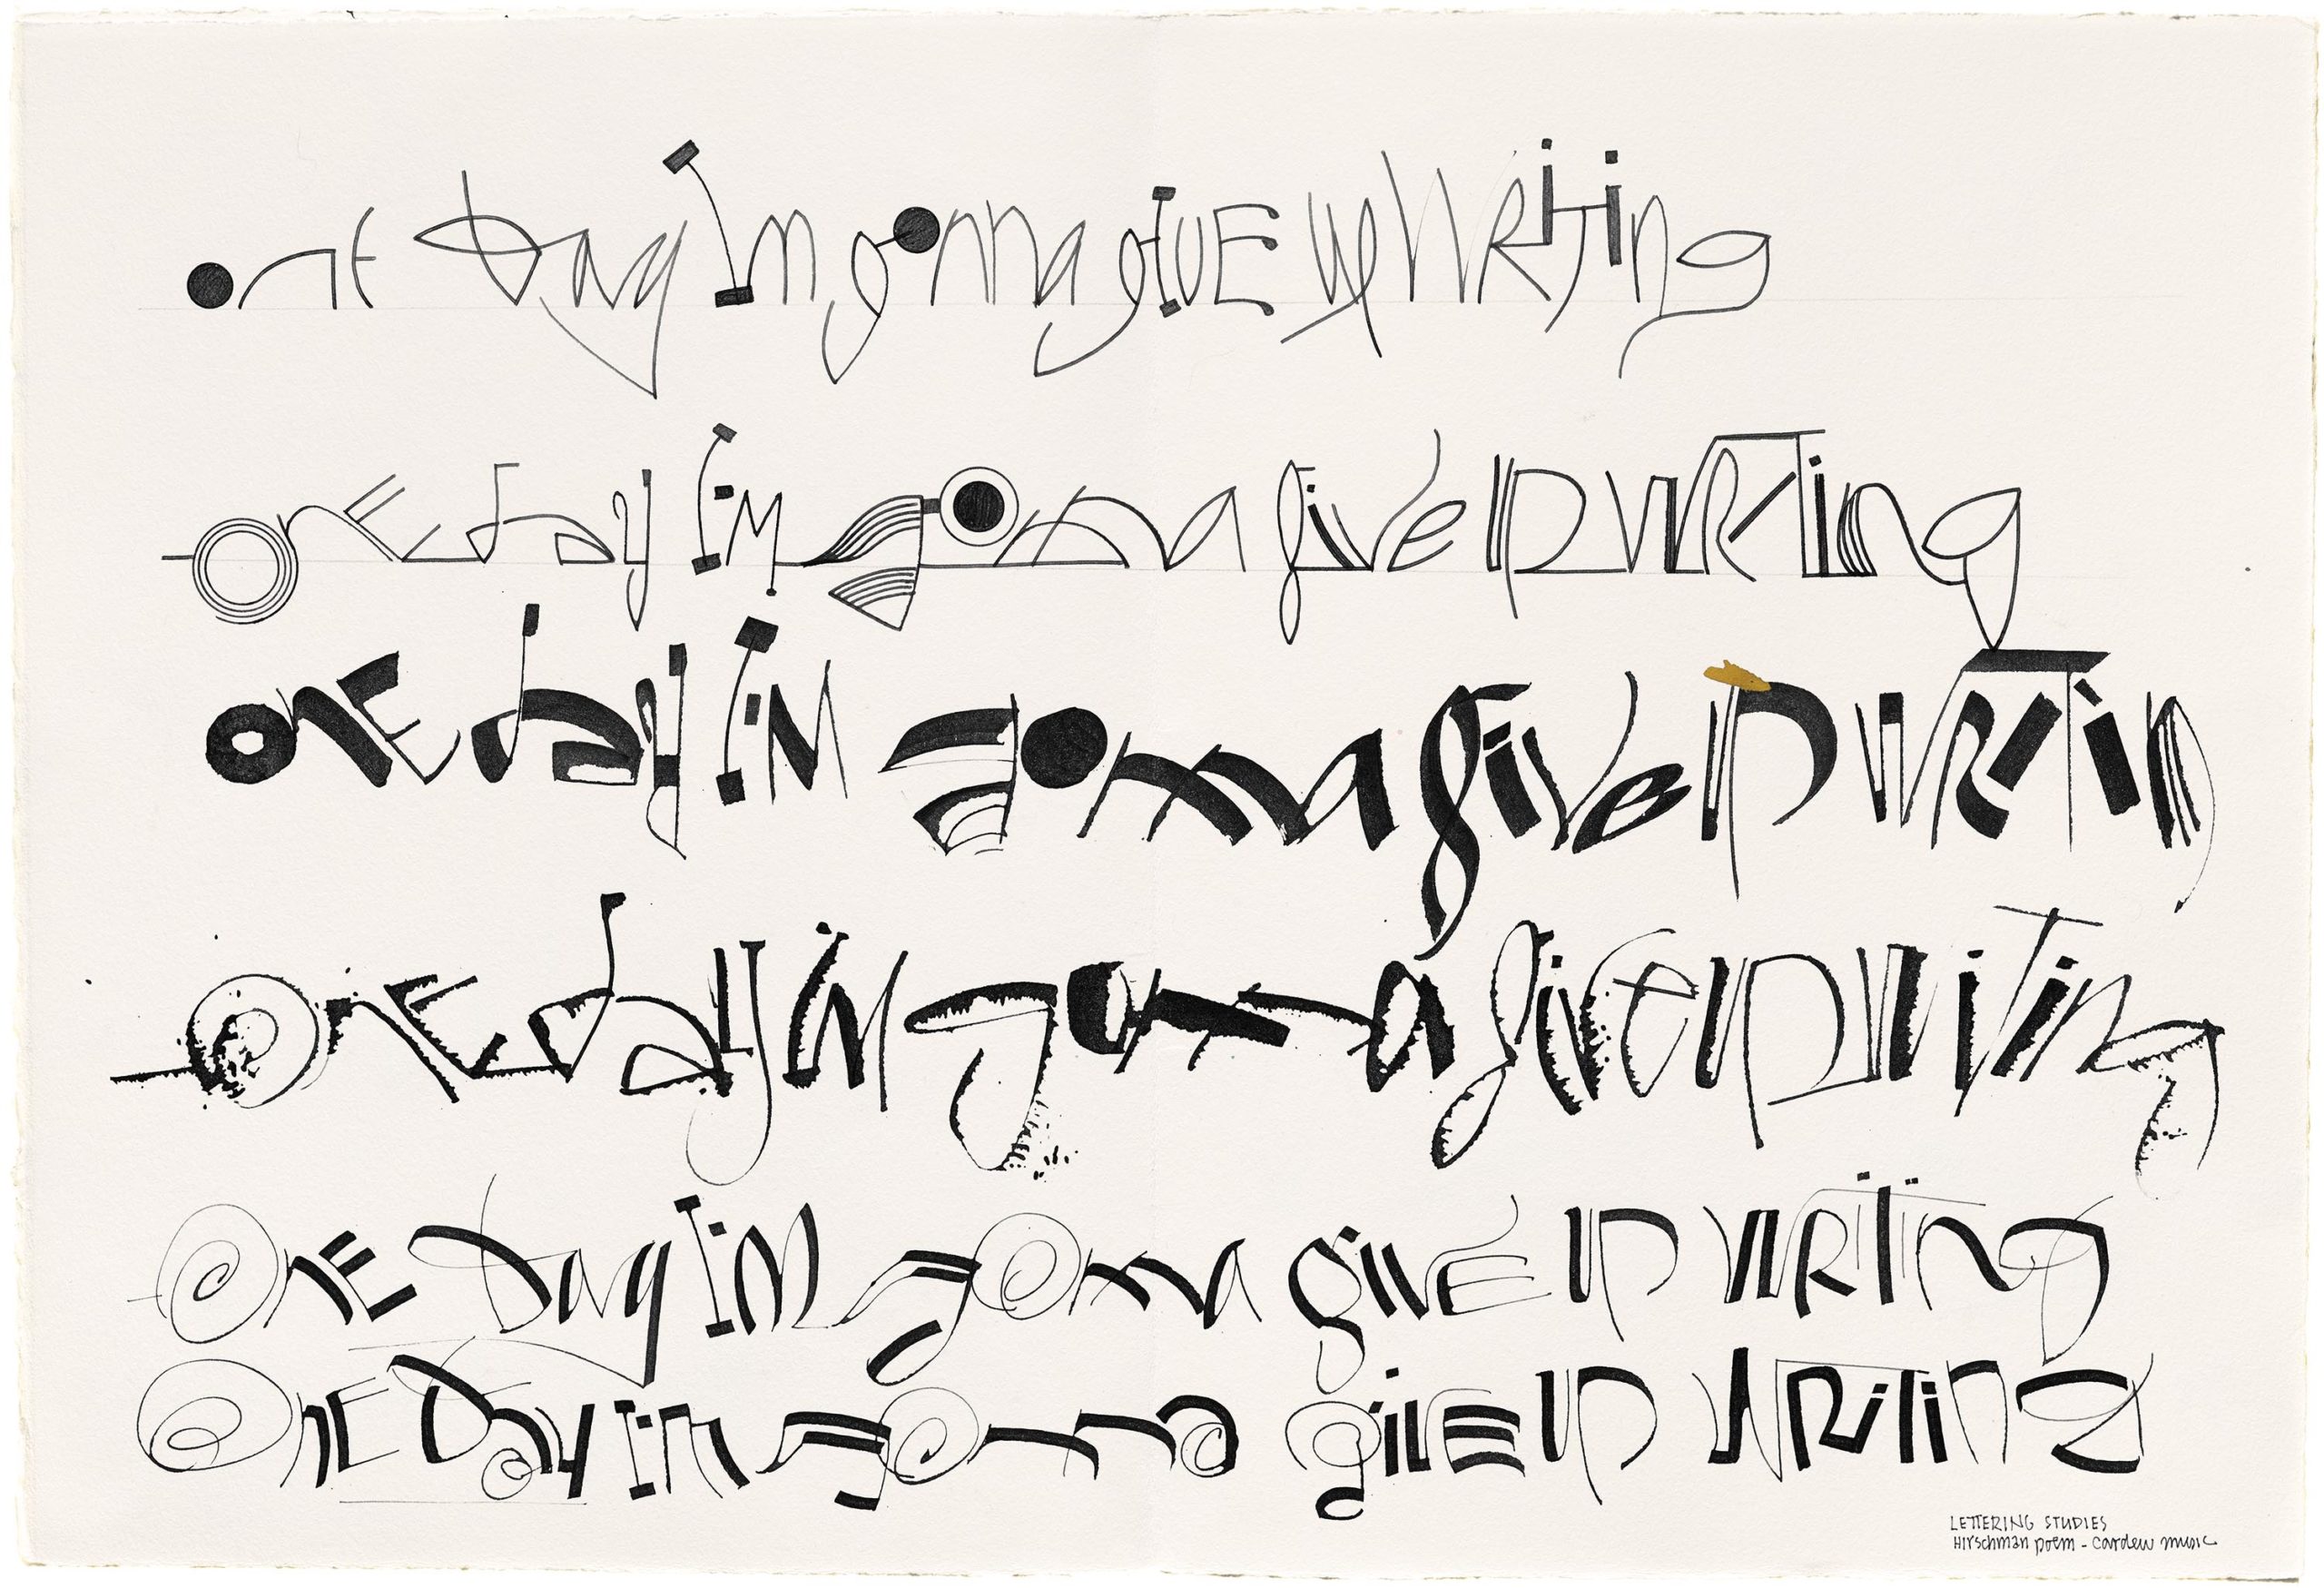 one Day Im gonna gIUE up WRiting
onE day I'M gonna give up wRiting
onE day I'M gonna give up wRitin
OnE day i'm gonna give up writing
OnE Day I'M gonna givE up wRiting
OnE Day I'm gonna givE up wRiting
LETTERING STUDIES
Hirschman poem - Cardew music